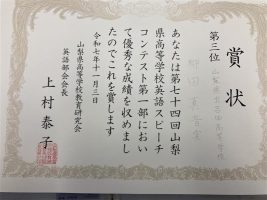 賞状
第三位
あなたは第七十四回山梨
県高等学校英語スピーチ
コンテスト第一部におい
て優秀な成績を収めまし
たのでこれを賞します
令和七年十一月三日
山梨県高等学校教育研究会
英語部会会長
上村泰子